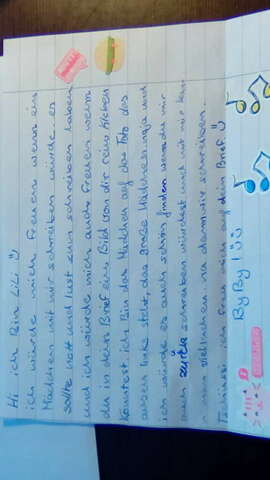 Hi ich bin Lili
ich würde mich freuen wenn ein
Mädchen mit mir schreiben würde. es
sollte nett und lust zum schreiben haben
und ich würde mich auch freuen wenn
du in dein Brief ein Bild von dir rein kleben
könntest ich bin das Mädchen auf das Foto das
ganz links steht, das große Mädchen naja und
ich würde es auch schön finden wenn du mir
auch zurück schreiben würdest und mit mir
vielleicht
ich freu mich auf dein Brief
ByBy!